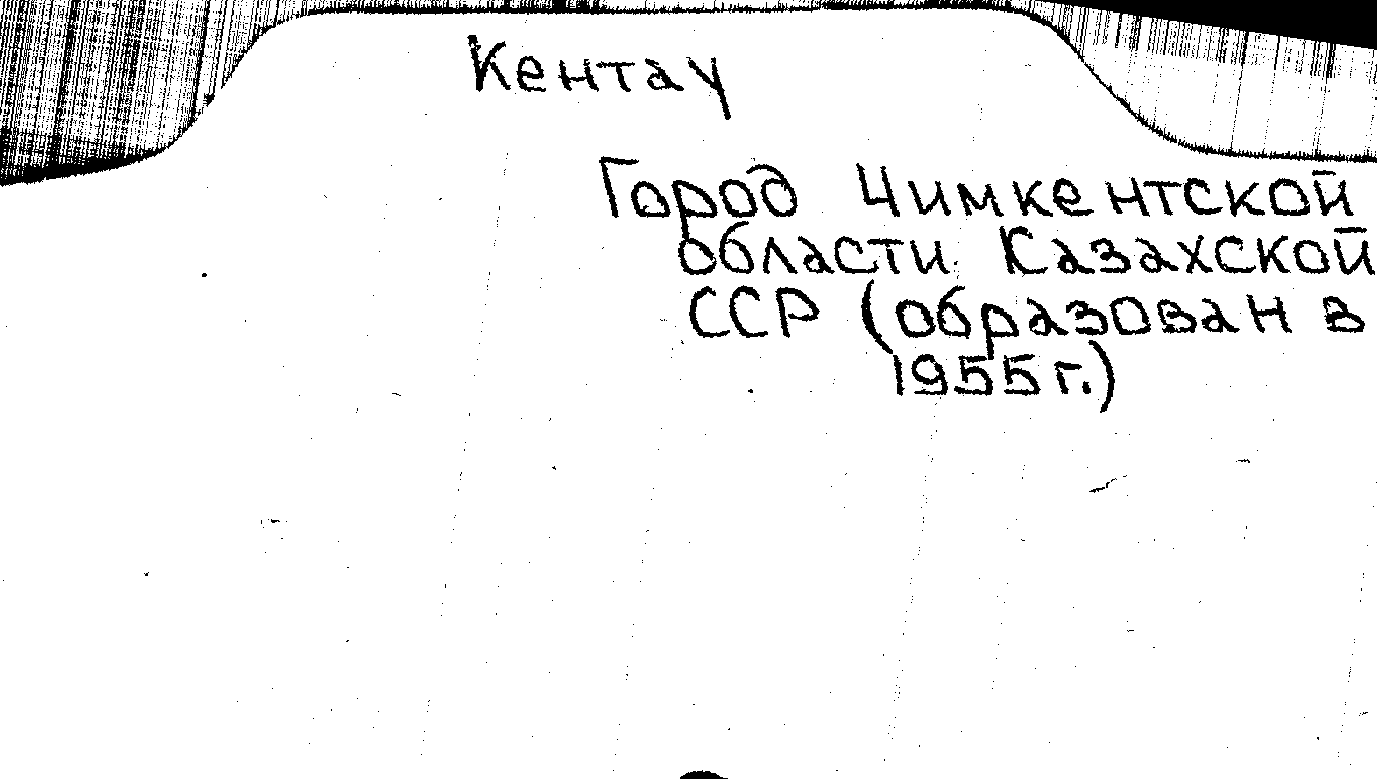 Кентау
Город Чимкентской
области Казахской
ССР (образован в
1955 г.)